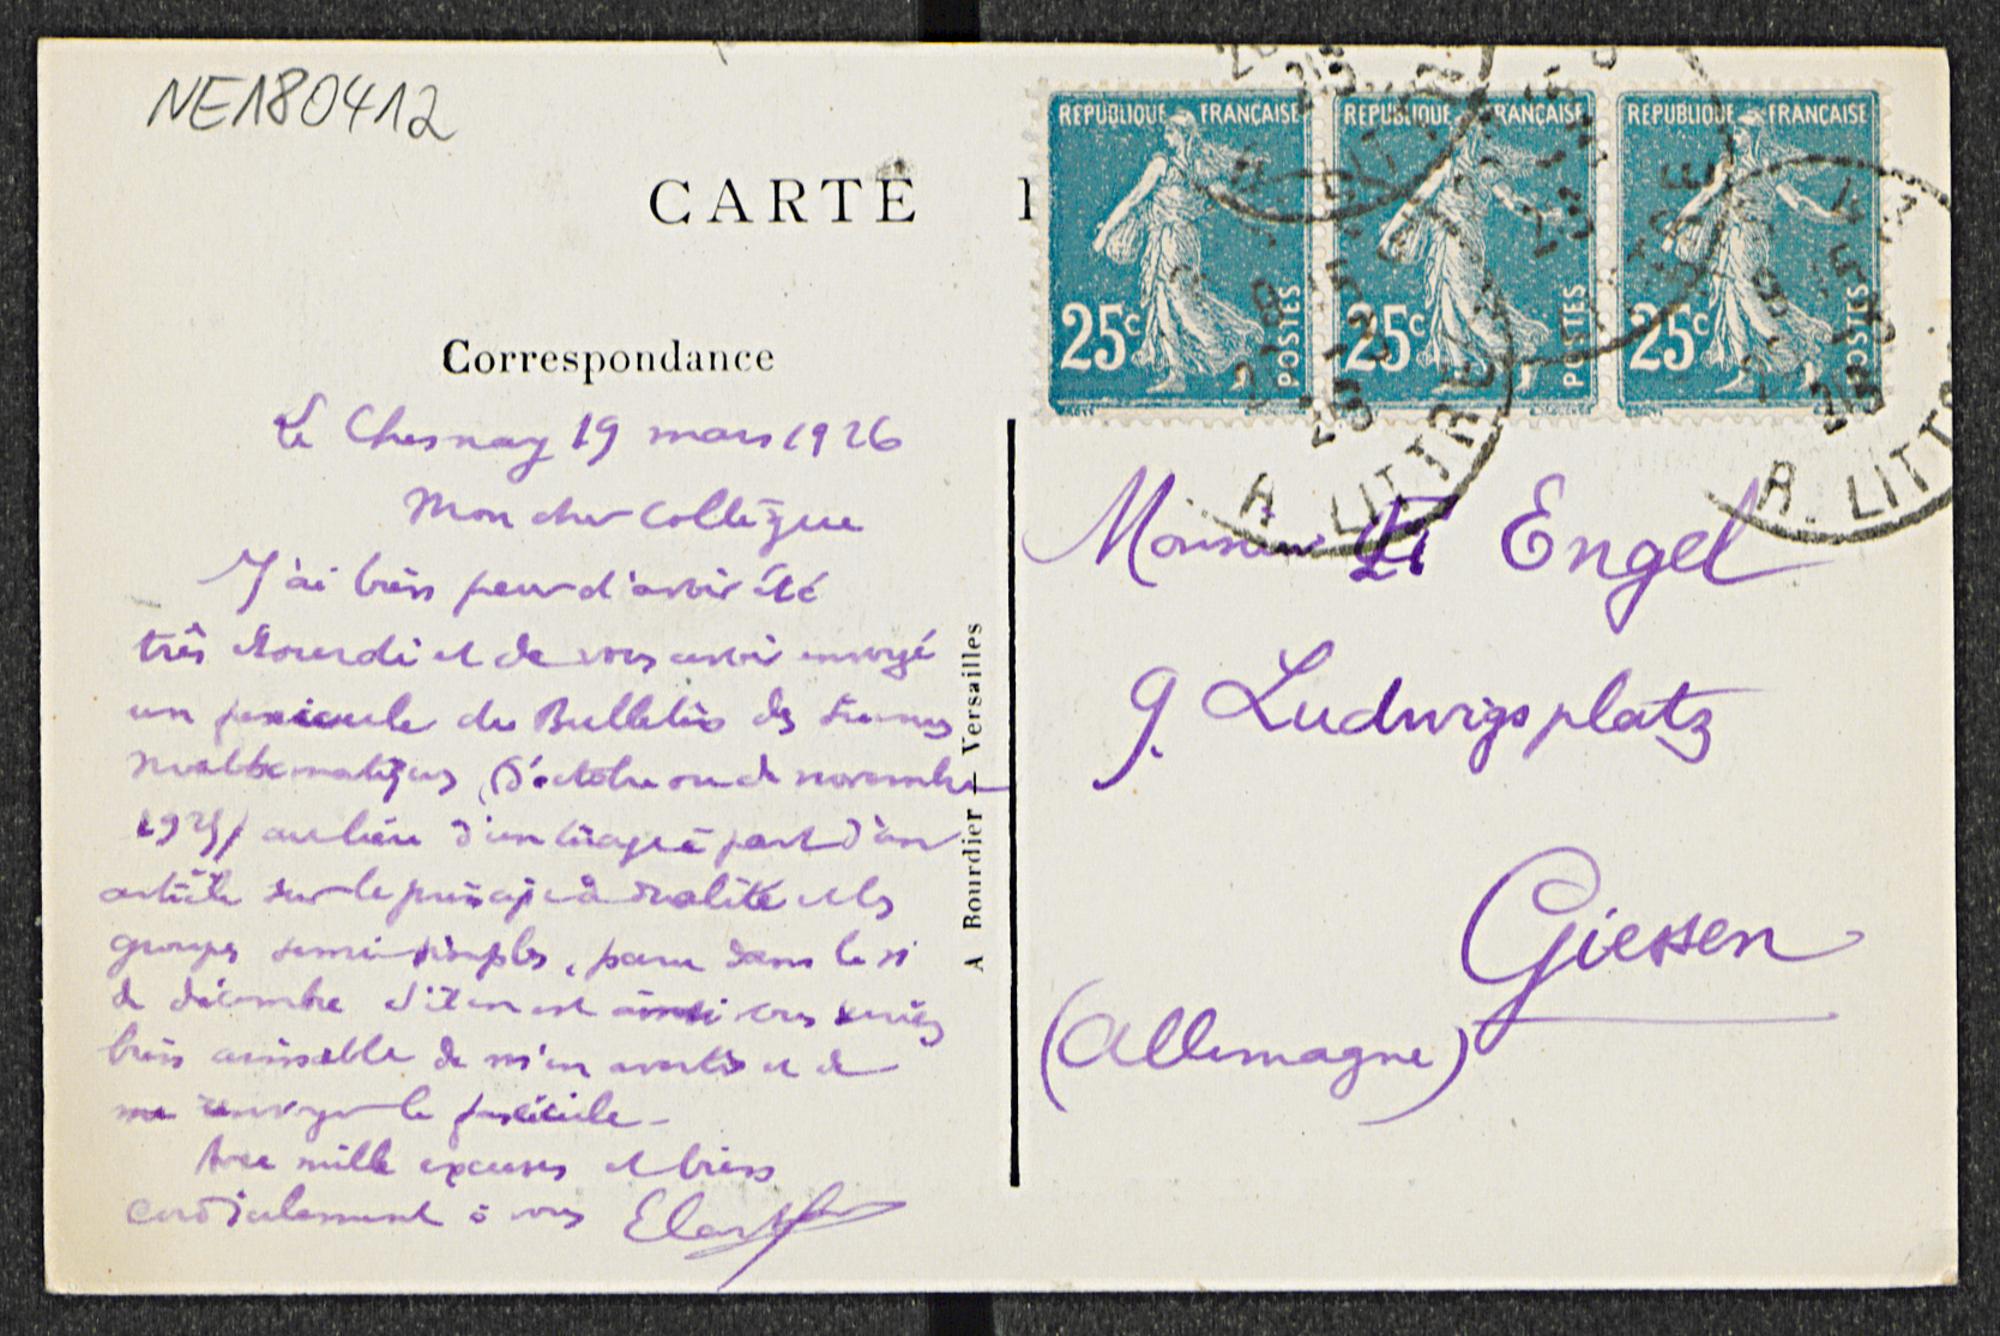 NE180412
CARTE
Correspondance
RÉPUBLIQUE FRANÇAISE
25c
POSTES
RÉPUBLIQUE FRANÇAISE
25c
POSTES
RÉPUBLIQUE FRANÇAISE
25c
POSTES
R. LITTRE
R. LITT
Le Chesnay 19 mars 1926
Mon cher Collègue
J'ai bien peur d'avoir été
très étourdi et de vous avoir envoyé
un fascicule du Bulletin des Sciences
Mathématiques (d'octobre ou de novembre
1925) au lieu d'un tirage à part d'un
article sur le principe de dualité et les
groupes semi-simples, paru dans le n°
de décembre. S'il en est ainsi vous seriez
bien aimable de m'en avertir et de
me renvoyer le fascicule.
Avec mille excuses et bien
cordialement à vous ECartan
A Bourdier — Versailles
Monsieur Fr Engel
9. Ludwigsplatz
Giessen
(Allemagne)